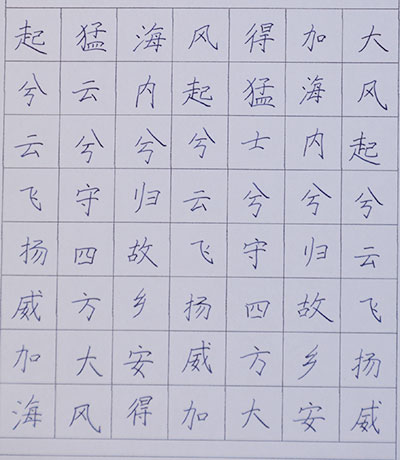 大风起兮云飞扬威
加海内兮归故乡安
得猛士兮守四方大
风起兮云飞扬威加
海内兮归故乡安得
猛云兮守四方大风
起兮云飞扬威加海